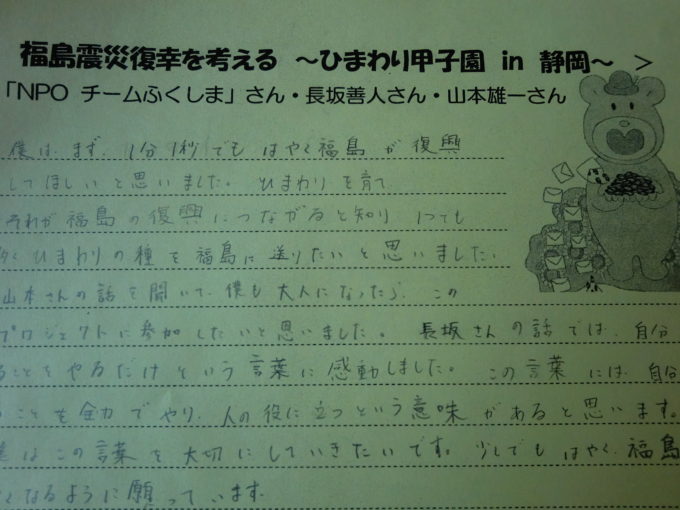 福島震災復幸を考える ～ひまわり甲子園 in 静岡～ ＞
「NPO チームふくしま」さん・長坂善人さん・山本雄一さん
僕は、まず、1分1秒でもはやく福島が復興
してほしいと思いました。ひまわりを育て
それが福島の復興につながると知り、1つでも
多くひまわりの種を福島に送りたいと思いました。
山本さんの話を聞いて、僕も大人になったら、この
プロジェクトに参加したいと思いました。長坂さんの話では、自分
ることをやるだけという言葉に感動しました。この言葉には、自分
ることを全力でやり、人の役に立つという意味があると思います。
僕はこの言葉を大切にしていきたいです。少しでもはやく、福島
くなるように願っています。